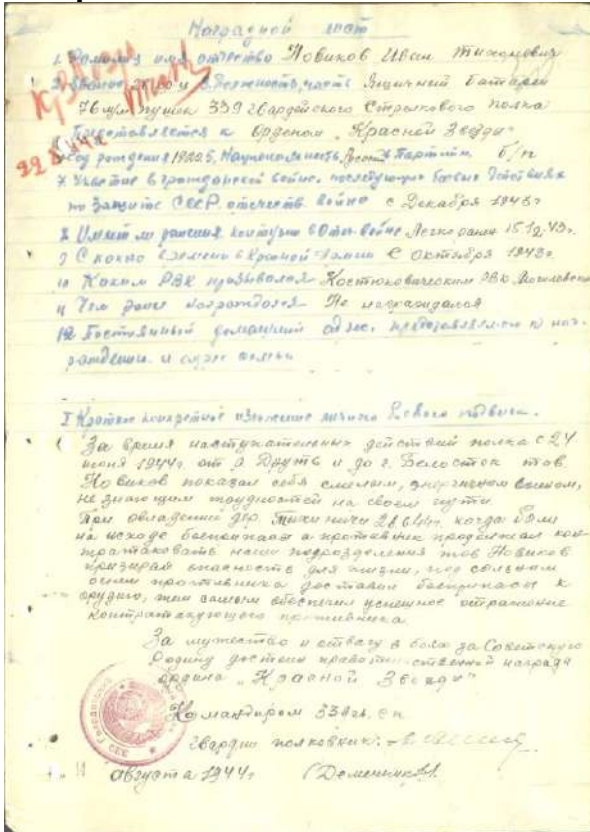 Наградной лист
1. Фамилия имя отчество Новиков Иван Тихонович
2. Звание 3. Должность, часть Ящичный батареи
76 м/м пушек 339 гвардейского Стрелкового полка
Представляется к Орденом „Красной Звезды"
Год рождения 1925, Национальность Партийн. б/п
7. Участие в гражданской войне, последующих боевых действиях
по защите СССР, отечеств. войне с Декабря 1943 г
8. Имеет ли ранения контузии в Отеч. войне Легко ранен 15.12.43 г.
9 С какого времени в Красной Армии С октября 1943 г.
10 Каким РВК призывался Костюковическим РВК
11 Чем ранее награждался Не награждался
12. Постоянный домашний адрес, представляемого к наг-
раждению и адрес семьи
I Краткое конкретное изложение личного боевого подвига.
За время наступательных действий полка с 24
июня 1944 г. от р. Друть и до г. Белосток тов.
Новиков показал себя смелым, энергичным воином,
не знающим трудностей на своем пути.
При овладении дер. 28.6.44 г. когда были
на исходе боеприпасы а противник продолжал кон-
тратаковать наши подразделения тов Новиков
призирая опасность для жизни, под сильным
огнем противника доставил боеприпасы к
орудию, тем самым обеспечил успешное отражение
контратакующего противника
За мужество и отвагу в боях за Советскую
Родину достоин правительственной награды
ордена „Красной Звезды"
Командиром 339 гв. сп
Гвардии полковник:
августа 1944 г.
Кр Звезды